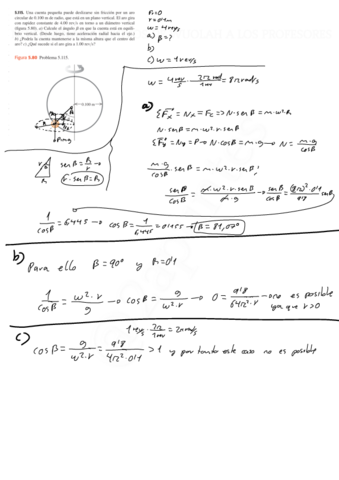 5.115. Una cuenta pequeña puede deslizarse sin fricción por un aro
circular de 0.100 m de radio, que está en un plano vertical. El aro gira
con rapidez constante de 4.00 rev/s en torno a un diámetro vertical
(figura 5.80). a) Calcule el ángulo β en que la cuenta está en equili-
brio vertical. (Desde luego, tiene aceleración radial hacia el eje.)
b) ¿Podría la cuenta mantenerse a la misma altura que el centro del
aro? c) ¿Qué sucede si el aro gira a 1.00 rev/s?
Figura 5.80 Problema 5.115.
0.100 m
β
P=m·g
r
β
R₁
sen β = R₁/r
r·sen β = R₁
r=0,1m
w=4rev/s
a) β=?
b)
c) w=1rev/s
w = 4 rev/s · 2π rad/1 rev = 8π rad/s
a)
ΣFx = Nx = Fc => N·sen β = m·w²·R₁
N·sen β = m·w²·r·sen β
ΣFy = Ny = P → N·cos β = m·g → N = m·g/cos β
m·g/cos β · sen β = m·w²·r·sen β;
sen β/cos β = w²·r·sen β/g → sen β/cos β = (8π)²·0,1/9,8 sen β
1/cos β = 6,445 → cos β = 1/6,445 = 0,155 → β = 81,07°
b)
Para ello β=90° y R₁=0,1
1/cos β = w²·r/g → cos β = g/w²·r → 0 = 9,8/64π²·r → no es posible
ya que r>0
c)
1 rev/s · 2π/1 rev = 2π rad/s
cos β = g/w²·r = 9,8/4π²·0,1 > 1 y por tanto este caso no es posible